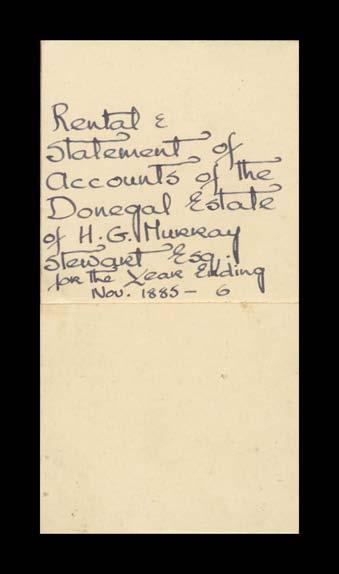 Rental &
Statement of
Accounts of the
Donegal Estate
of H. G. Murray
Stewart Esq.
for the Year Ending
Nov. 1885 - 6